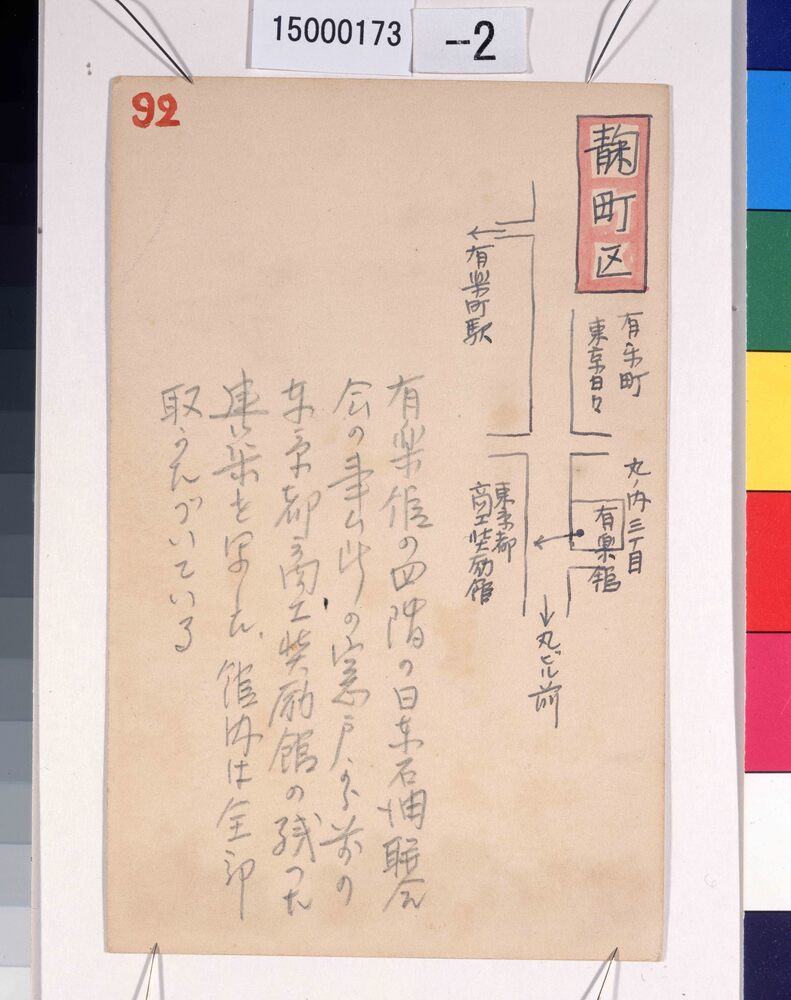 15000173
-2
92
麹町区
有楽町
東京日々
丸ノ内三丁目
有楽館
有楽町駅
東京都
商工奨励館
丸ビル前
有楽館の四階の日本石油聯合
会の事ム所の窓戸から前の
東京都商工奨励館の残った
建築を写した、館内は全部
取